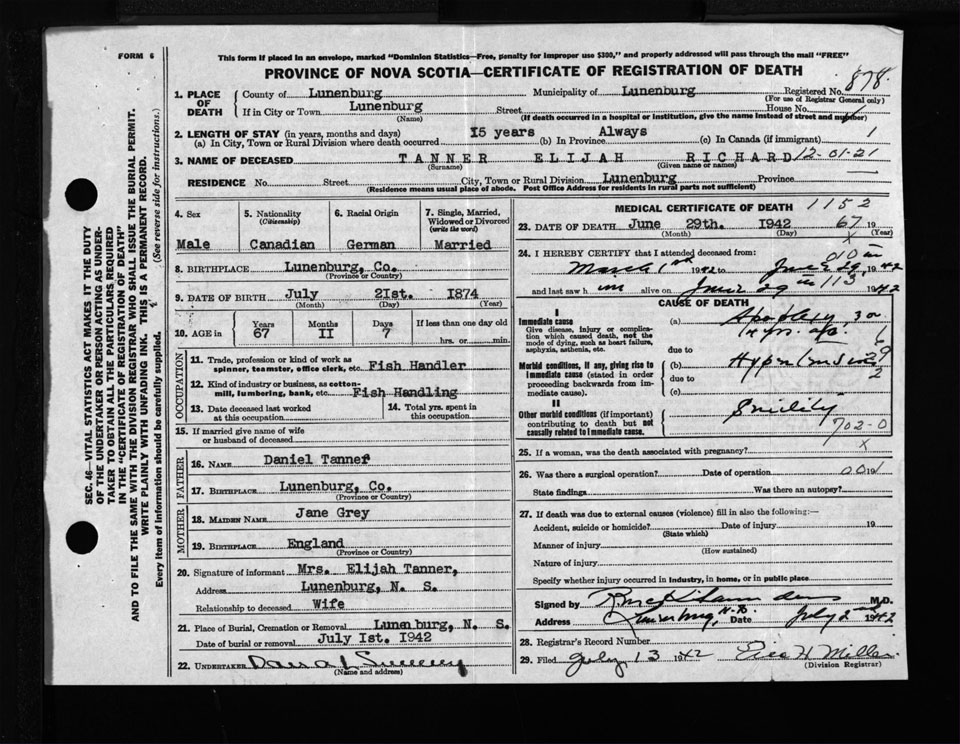 FORM 6
This form if placed in an envelope, marked "Dominion Statistics—Free, penalty for improper use $300," and properly addressed will pass through the mail "FREE"
PROVINCE OF NOVA SCOTIA—CERTIFICATE OF REGISTRATION OF DEATH
878
1. PLACE OF DEATH County of Lunenburg Municipality of Lunenburg Registered No.
(For use of Registrar General only)
If in City or Town Lunenburg Street House No.
(Name) (If death occurred in a hospital or institution, give the name instead of street and number)
2. LENGTH OF STAY (in years, months and days)
(a) In City, Town or Rural Division where death occurred 15 years (b) In Province Always (c) In Canada (if immigrant) 1
3. NAME OF DECEASED TANNER ELIJAH RICHARD 12-01-21
(Surname) (Given name or names)
RESIDENCE No. Street City, Town or Rural Division Lunenburg Province
(Residence means usual place of abode. Post Office Address for residents in rural parts not sufficient)
4. Sex Male
5. Nationality (Citizenship) Canadian
6. Racial Origin German
7. Single, Married, Widowed or Divorced (write the word) Married
8. BIRTHPLACE Lunenburg, Co.
(Province or Country)
9. DATE OF BIRTH July 21st. 1874
(Month) (Day) (Year)
10. AGE in Years 67 Months II Days 7 If less than one day old
hrs. or min.
OCCUPATION
11. Trade, profession or kind of work as spinner, teamster, office clerk, etc. Fish Handler
12. Kind of industry or business, as cotton-mill, lumbering, bank, etc. Fish Handling
13. Date deceased last worked at this occupation
14. Total yrs. spent in this occupation
15. If married give name of wife or husband of deceased
FATHER
16. NAME Daniel Tanner
17. BIRTHPLACE Lunenburg, Co.
(Province or Country)
MOTHER
18. MAIDEN NAME Jane Grey
19. BIRTHPLACE England
(Province or Country)
20. Signature of informant Mrs. Elijah Tanner,
Address Lunenburg, N. S.
Relationship to deceased Wife
21. Place of Burial, Cremation or Removal Lunenburg, N. S.
Date of burial or removal July 1st. 1942
22. UNDERTAKER
(Name and address)
MEDICAL CERTIFICATE OF DEATH 1152
23. DATE OF DEATH June 29th. 1942 67 19
(Month) (Day) (Year)
24. I HEREBY CERTIFY that I attended deceased from:
March 1st 1942 to June 29, 1942
and last saw h im alive on June 29 1942
CAUSE OF DEATH
I
Immediate cause
Give disease, injury or complication which caused death, not the mode of dying, such as heart failure, asphyxia, asthenia, etc.
(a) Apoplexy 3 or 4 yrs. ago.
due to
Morbid conditions, if any, giving rise to immediate cause (stated in order proceeding backwards from immediate cause).
(b) Hypertension
due to
(c)
II
Other morbid conditions (if important) contributing to death but not causally related to immediate cause.
Senility
702-0
25. If a woman, was the death associated with pregnancy? X
26. Was there a surgical operation? Date of operation
State findings Was there an autopsy?
27. If death was due to external causes (violence) fill in also the following:—
Accident, suicide or homicide? Date of injury 19
(State which)
Manner of injury
(How sustained)
Nature of injury
Specify whether injury occurred in industry, in home, or in public place
Signed by M.D.
Address Lunenburg, N.S. Date July 2nd 1942
28. Registrar's Record Number
29. Filed July 13 1942
(Division Registrar)
SEC. 46—VITAL STATISTICS ACT MAKES IT THE DUTY
OF THE UNDERTAKER OR PERSON ACTING AS UNDER-
TAKER TO OBTAIN ALL THE PARTICULARS REQUIRED
IN THE "CERTIFICATE OF REGISTRATION OF DEATH"
AND TO FILE THE SAME WITH THE DIVISION REGISTRAR WHO SHALL ISSUE THE BURIAL PERMIT.
WRITE PLAINLY WITH UNFADING INK. THIS IS A PERMANENT RECORD.
Every item of information should be carefully supplied. (See reverse side for instructions.)